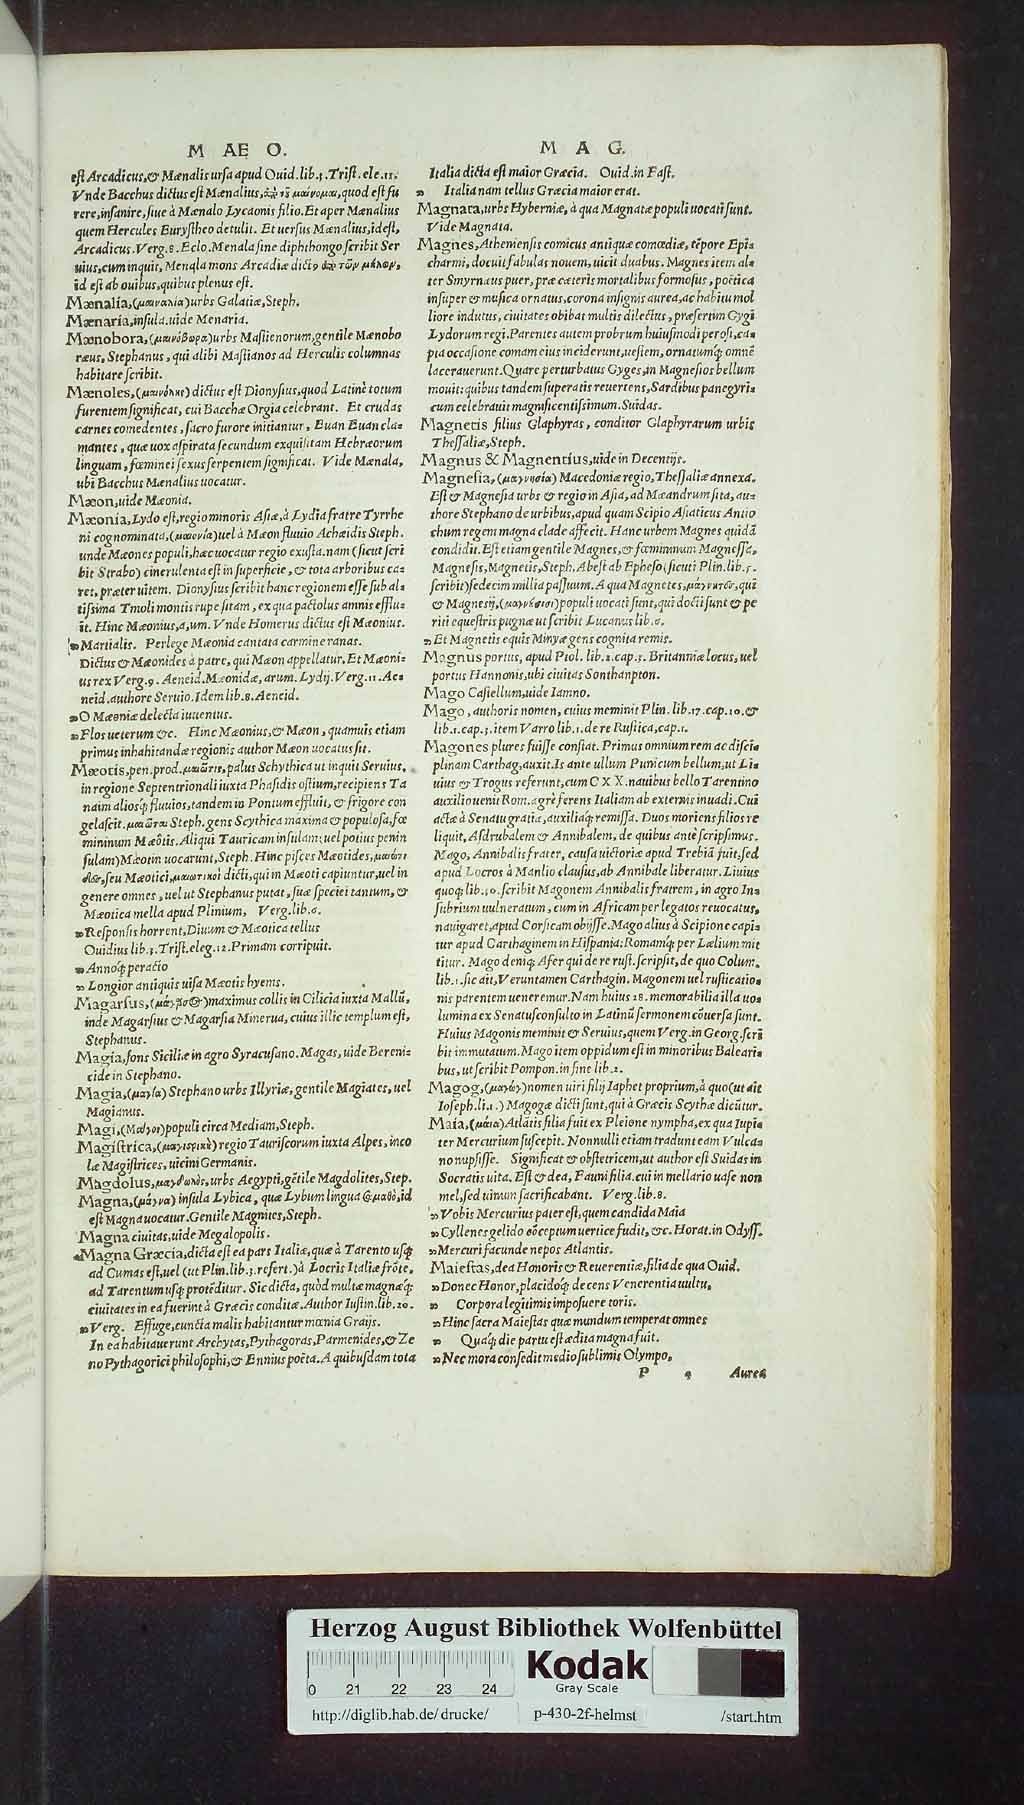 M AE O.
est Arcadicus,& Mænalis ursa apud Ouid.lib.4.Trist.ele.11.
Vnde Bacchus dictus est Mænalius, quod est fu
rere,insanire,siue à Mænalo Lycaonis filio.Et aper Mænalius
quem Hercules Eurystheo detulit. Et uersus Mænalius,idest,
Arcadicus.Verg.8.Eclo.Menala sine diphthongo scribit Ser
uius,cum inquit, Menala mons Arcadiæ
id est ab ouibus,quibus plenus est.
Mænalia,(μαιναλία)urbs Galatiæ,Steph.
Mænaria,insula.uide Menaria.
Mænobora,(μαινόβωρα)urbs Mastienorum,gentile Mænobo
ræus,Stephanus,qui alibi Mastianos ad Herculis columnas
habitare scribit.
Mænoles,(μαινόλης) dictus est Dionysius,quod Latinè totum
furentem significat, cui Bacchæ Orgia celebrant. Et crudas
carnes comedentes,sacro furore initiantur, Euan Euan cla-
mantes, quæ uox aspirata secundum exquisitam Hebræorum
linguam,fœminei sexus serpentem significat. Vide Mænala,
ubi Bacchus Mænalius uocatur.
Mæon,uide Mæonia.
Mæonia,Lydo est,regio minoris Asiæ,à Lydia fratre Tyrrhe
ni cognominata,(μαιονία)uel à Mæon fluuio Achæidis Steph.
unde Mæones populi,hæc uocatur regio exusta.nam (sicut scri
bit Strabo) cinerulenta est in superficie,& tota arboribus ca-
ret,præter uitem. Dionysius scribit hanc regionem esse sub al-
tissima Tmoli montis rupe sitam,ex qua pactolus amnis efflu-
it. Hinc Mæonius,a,um.Vnde Homerus dictus est Mæonius.
„Martialis. Perlege Mæonia cantata carmine ranas.
Dictus & Mæonides à patre,qui Mæon appellatur.Et Mæoni-
us rex Verg.9.Aeneid.Mæonidæ,arum.Lydij.Verg.11.Ae-
neid.authore Seruio.Idem lib.8.Aeneid.
„O Mæoniæ delecta iuuentus.
„Flos ueterum &c. Hinc Mæonius,& Mæon,quamuis etiam
primus inhabitandæ regionis author Mæon uocatus sit.
Mæotis,pen.prod.μαιῶτις,palus Schythica ut inquit Seruius,
in regione Septentrionali iuxta Phasidis ostium,recipiens Ta
naim aliosq́ fluuios,tandem in Pontum effluit,& frigore con
gelascit.μαιῶται Steph.gens Scythica maxima & populosa,fœ
mininum Mæôtis.Aliqui Tauricam insulam(uel potius penin
sulam)Mæotin uocarunt,Steph.Hinc pisces Mæotides,
seu Mæotici,μαιωτικοὶ dicti,qui in Mæoti capiuntur,uel in
genere omnes,uel ut Stephanus putat,suæ speciei tantum,&
Mæotica mella apud Plinium, Verg.lib.6.
„Responsis horrent,Diuum & Mæotica tellus
Ouidius lib.3.Trist.eleg.12.Primam corripuit.
„Annoq́ peracto
„Longior antiquis uisa Mæotis hyems.
Magarsus,maximus collis in Cilicia iuxta Mallũ,
inde Magarsius & Magarsia Minerua,cuius illic templum est,
Stephanus.
Magia,fons Siciliæ in agro Syracusano.Magas,uide Bereni-
cide in Stephano.
Magia,(μαγία)Stephano urbs Illyriæ,gentile Magiates,uel
Magianus.
Magi,(Μάγοι)populi circa Mediam,Steph.
Magistrica,regio Tauriscorum iuxta Alpes,inco
læ Magistrices,uicini Germanis.
Magdolus,μαγδωλὸς,urbs Aegypti,gẽtile Magdolites,Step.
Magna,(μάγνα)insula Lybica, quæ Lybum lingua id
est Magna uocatur.Gentile Magnites,Steph.
Magna ciuitas,uide Megalopolis.
Magna Græcia,dicta est ea pars Italiæ,quæ à Tarento usq́
ad Cumas est,uel (ut Plin.lib.3.refert.)à Locris Italiæ frõte,
ad Tarentum usq́ protẽditur.Sic dicta, quòd multæ magnæq́
ciuitates in ea fuerint à Græcis conditæ.Author Iustin.lib.20.
„Verg. Effuge,cuncta malis habitantur mœnia Graijs.
In ea habitauerunt Archytas,Pythagoras,Parmenides,& Ze
no Pythagorici philosophi,& Ennius poëta.A quibusdam tota
M A G.
Italia dicta est maior Græcia. Ouid.in Fast.
„ Itala nam tellus Græcia maior erat.
Magnata,urbs Hyberniæ,à qua Magnatæ populi uocati sunt.
Vide Magnata.
Magnes,Atheniensis comicus antiquæ comœdiæ,tẽpore Epi-
charmi,docuit fabulas nouem,uicit duabus.Magnes item al-
ter Smyrnæus puer,præ cæteris mortalibus formosus,poëtica
insuper & musica ornatus,corona insignis aurea,ac habitu mol
liore indutus,ciuitates obibat multis dilectus,præsertim Gygi
Lydorum regi.Parentes autem probrum huiusmodi perosi,ca-
pta occasione comam eius inciderunt,uestem,ornatumq́ omnẽ
lacerauerunt.Quare perturbatus Gyges,in Magnesios bellum
mouit:quibus tandem superatis reuertens,Sardibus panegyri-
cum celebrauit magnificentissimum.Suidas.
Magnetis filius Glaphyras, conditor Glaphyrarum urbis
Thessaliæ,Steph.
Magnus & Magnentius,uide in Decentijs.
Magnesia,(μαγνησία)Macedoniæ regio,Thessaliæ annexa.
Est & Magnesia urbs & regio in Asia,ad Mæandrum sita,au-
thore Stephano de urbibus,apud quam Scipio Asiaticus Antio
chum regem magna clade affecit. Hanc urbem Magnes quidã
condidit.Est etiam gentile Magnes,& fœmininum Magnessa,
Magnesis,Magnetis,Steph.Abest ab Epheso(sicuti Plin.lib.5.
scribit)sedecim millia passuum.A qua Magnetes,μάγνητοι,qui
& Magnesij,(μαγνήσιοι)populi uocati sunt,qui docti sunt & pe
riti equestris pugnæ ut scribit Lucanus lib.6.
„Et Magnetis equis Minyæ gens cognita remis.
Magnus portus, apud Ptol. lib.2.cap.3. Britanniæ locus, uel
portus Hannonis,ubi ciuitas Sonthanpton.
Mago Castellum,uide Iamno.
Mago, authoris nomen, cuius meminit Plin. lib.17.cap.10.&
lib.1.cap.3.item Varro lib.1.de re Rustica,cap.1.
Magones plures fuisse constat.Primus omnium rem ac disci-
plinam Carthag.auxit.Is ante ullum Punicum bellum,ut Li-
uius & Trogus referunt,cum C X X.nauibus bello Tarentino
auxilio uenit Rom.ægrè ferens Italiam ab externis inuadi.Cui
actæ à Senatu gratiæ,auxiliaq́ remissa. Duos moriens filios re
liquit, Asdrubalem & Annibalem, de quibus antè scripsimus.
Mago, Annibalis frater, causa uictoriæ apud Trebiã fuit,sed
apud Locros à Manlio clausus,ab Annibale liberatur.Liuius
quoq́ lib.40.scribit Magonem Annibalis fratrem, in agro In-
subrium uulneratum,cum in Africam per legatos reuocatus,
nauigaret,apud Corsicam obijsse.Mago alius à Scipione capi-
tur apud Carthaginem in Hispania:Romamq́ per Lælium mit
titur. Mago deniq́ Afer qui de re rust.scripsit,de quo Colum.
lib.1.sic ait,Veruntamen Carthagin.Magonem uel rusticatio-
nis parentem ueneremur.Nam huius 28.memorabilia illa uo-
lumina ex Senatusconsulto in Latinũ sermonem cõuersa sunt.
Huius Magonis meminit & Seruius,quem Verg.in Georg.scri
bit immutatum.Mago item oppidum est in minoribus Baleari-
bus,ut scribit Pompon.in fine lib.2.
Magog,(μαγώγ)nomen uiri filij Iaphet proprium,à quo(ut ait
Ioseph.li.1.) Magogæ dicti sunt,qui à Græcis Scythæ dicũtur.
Maia,(μάια)Atlãtis filia fuit ex Pleione nympha,ex qua Iupi-
ter Mercurium suscepit.Nonnulli etiam tradunt eam Vulca-
no nupsisse. Significat & obstetricem,ut author est Suidas in
Socratis uita.Est & dea,Fauni filia.cui in mellario uase non
mel,sed uinum sacrificabant. Verg.lib.8.
„Vobis Mercurius pater est,quem candida Maia
„Cyllenes gelido cõceptum uertice fudit,&c.Horat.in Odyss.
„Mercuri facunde nepos Atlantis.
Maiestas,dea Honoris & Reuerentiæ,filia de qua Ouid.
„Donec Honor,placidoq́ decens Venerentia uultu,
„ Corpora legitimis imposuere toris.
„Hinc sacra Maiestas quæ mundum temperat omnes
„ Quaq́ die partu est ædita magna fuit.
„Nec mora consedit medio sublimis Olympo,
P 4 Aurea
Herzog August Bibliothek Wolfenbüttel
Kodak
Gray Scale
0 21 22 23 24
http://diglib.hab.de/drucke/ p-430-2f-helmst /start.htm